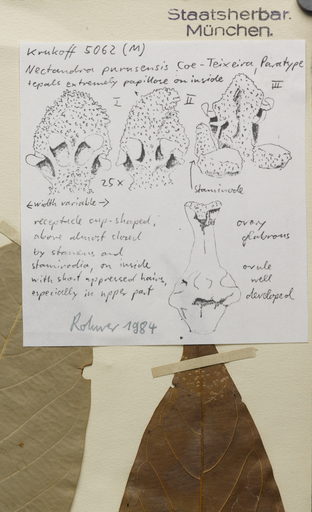 Staatsherbar.
München.
Krukoff 5062 (M)
Nectandra purusensis Coe-Teixeira, Paratype
tepals extremely papillose on inside
I
II
III
25x
staminode
←width variable→
receptacle cup-shaped,
above almost closed
by stamens and
staminodia, on inside
with short appressed hairs,
especially in upper part
ovary
glabrous
ovule
well
developed
Rohwer 1984